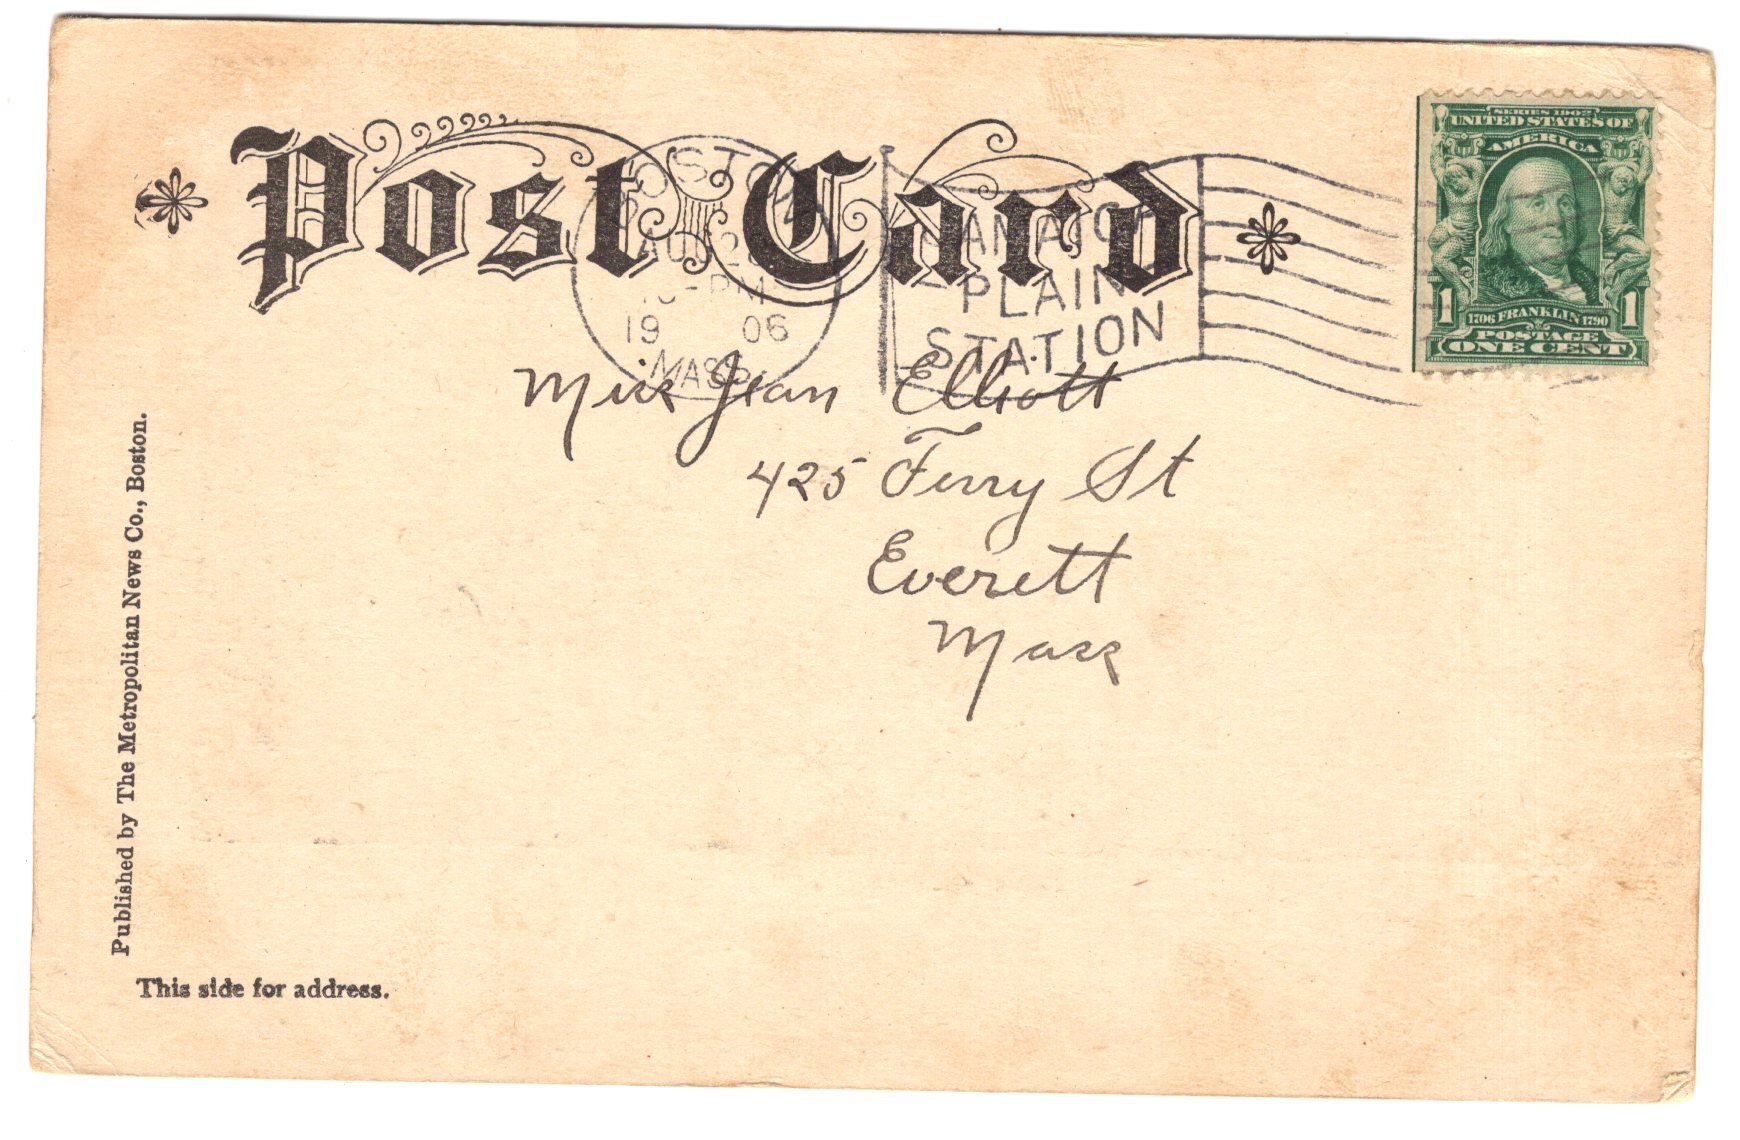 Post Card
BOSTON
AUG
PM
19 06
MASS.
JAMAICA
PLAIN
STATION
SERIES 1902
UNITED STATES OF
AMERICA
1 1
1706 FRANKLIN 1790
POSTAGE
ONE CENT
Miss Jean Elliott
425 Ferry St
Everett
Mass
Published by The Metropolitan News Co., Boston.
This side for address.